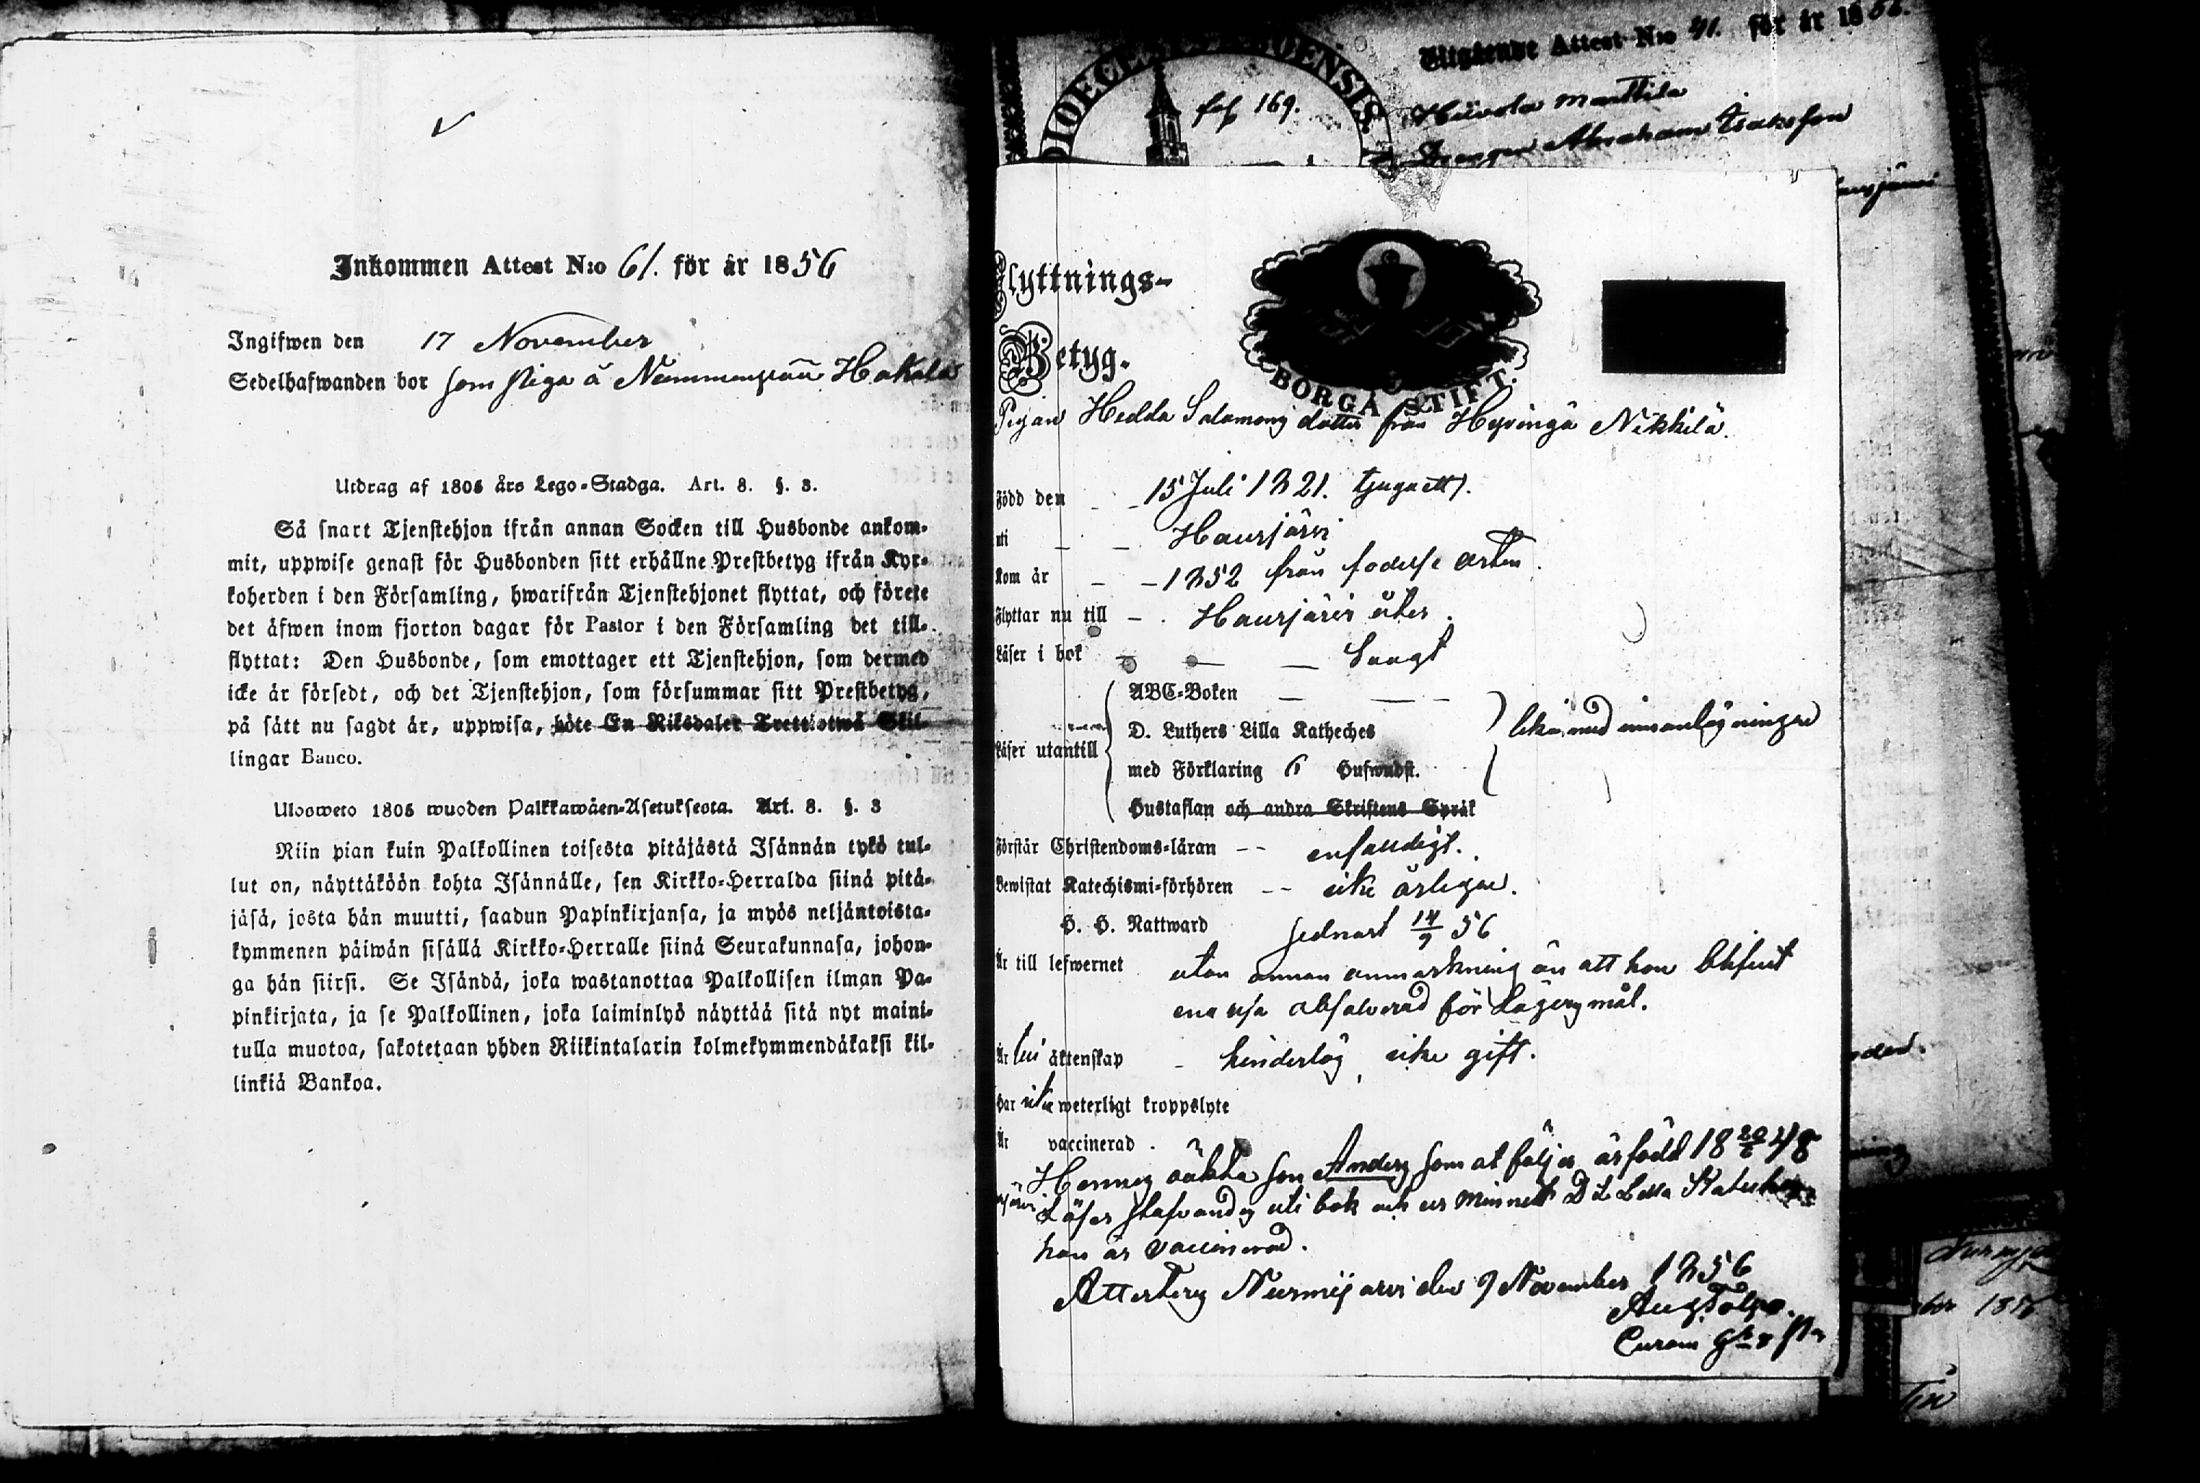 Inkommen Attest N:o 61. för år 1856
Ingifwen den 17 November
Sedelhafwanden bor som piga å Hakala
Utdrag af 1805 års Lego-Stadga. Art. 8. §. 3.
Så snart Tjenstehjon ifrån annan Socken till Husbonde ankom-
mit, uppwise genast för Husbonden sitt erhållne Prestbetyg ifrån Kyr-
koherden i den Församling, hwarifrån Tjenstehjonet flyttat, och förete
det äfwen inom fjorton dagar för Pastor i den Församling det till-
flyttat: Den Husbonde, som emottager ett Tjenstehjon, som dermed
icke är försedt, och det Tjenstehjon, som försummar sitt Prestbetyg,
på sätt nu sagdt är, uppwisa, böte En Riksdaler Trettiotwå Skil-
lingar Banco.
Ulosweto 1805 wuoden Palkkawäen-Asetuksesta. Art. 8. §. 3
Niin pian kuin Palkollinen toisesta pitäjästä Isännän tykö tul-
lut on, näyttäköön kohta Isännälle, sen Kirkko-Herralda siinä pitä-
jäsä, josta hän muutti, saadun Papinkirjansa, ja myös neljäntoista-
kymmenen päiwän sisällä Kirkko-Herralle siinä Seurakunnasa, johon-
ga hän siirsi. Se Isändä, joka wastanottaa Palkollisen ilman Pa-
pinkirjata, ja se Palkollinen, joka laiminlyö näyttää sitä nyt maini-
tulla muotoa, sakotetaan yhden Riikintalarin kolmekymmendäkaksi kil-
linkiä Bankoa.
DIOECES BOENSIS
fol 169.
Utgående Attest N:o 41. för år 1856.
Hüvola Manttila
Drengen Abraham Isaksson
Flyttnings-
Betyg.
BORGÅ STIFT.
Pigan Hedda Salamons dotter från Hyvingä Nikkilä.
Född den 15 Juli 1821. tjuguett).
uti Hausjärvi
Kom år 1852 från födelse orten.
Flyttar nu till Hausjärvi åter.
Läser i bok Svagt
ABC-Boken
Läser utantill D. Luthers Lilla Katheches
med Förklaring 6 Hufwudst.
Hustaflan och andra Skriftens Språk
Förstår Christendoms-läran enfaldigt.
Bewistat Katechismi-förhören icke årligen.
H. H. Nattward sednast 14/9 56
Är till lefwernet utan annan anmärkning än att hon blifvit
enskilt absolverad för Lägersmål.
Är till äktenskap hinderlös, icke gift.
Har icke weterligt kroppslyte
Är vaccinerad.
Hennes oäkta son Anders som åtföljer är född 18 20/ 48
Läser stafvandes uti bok och ur minnet D L Lilla
han är vaccinerad.
Attesteras Nurmijärvi den 9 November 1856
Aug